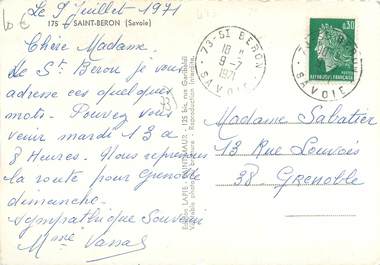 Le 9 Juillet 1971
175 - SAINT-BERON (Savoie)
Chère Madame.
De St Beron je vous
adresse ces quelques
mots. Pouvez vous
venir mardi 13 à
8 Heures. Nous reprenons
la route pour Grenoble
dimanche.
sympathique Souvenir
Mme
Editions LAPIE - SAINT-MAUR - 125 bis, rue Garibaldi
Véritable photo au bromure - Reproduction interdite
73 - ST BERON
18 H
9-7
1971
SAVOIE
0,30
REPUBLIQUE FRANCAISE
Madame Sabatier
13 Rue Louvois
38. Grenoble